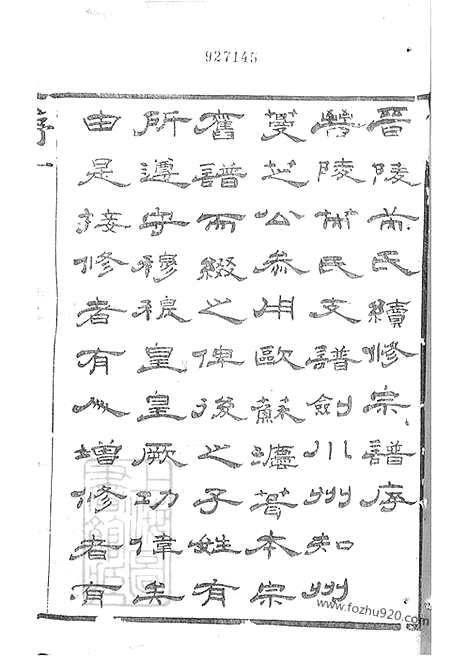 927145
晋陵茾氏續修宗譜序
晋陵茾氏支譜劍川州知州
蔓芝公叅用歐蘇瀍蒐本宗
舊譜而綴之俾後之子姓有
所遵守穆穆皇皇厥功偉矣
由是接修者有人增修者有
序一
www.fozhu920.com